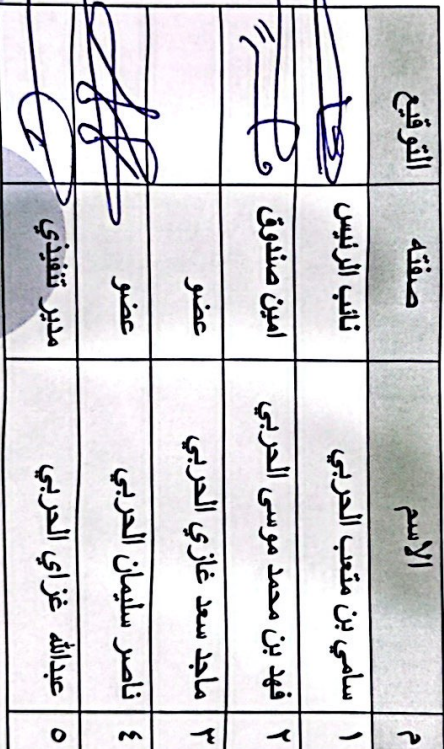 م الاسم صفته التوقيع
١ سامي بن متعب الحربي نائب الرئيس
٢ فهد بن محمد موسى الحربي امين صندوق
٣ ماجد سعد غازي الحربي عضو
٤ ناصر سليمان الحربي عضو
٥ عبدالله غزاي الحربي مدير تنفيذي